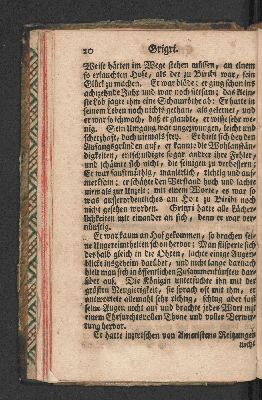 20 Grigri.
Weise hätten im Wege stehen müssen, an einem
so erlauchten Hofe, als der zu Biribi war, sein
Glück zu machen. Er war blöde; er ging schon ins
achtzehnte Jahr und war noch sittsam; das klein-
ste Lob jagte ihm eine Schamröthe ab: Er hatte in
seinem Leben noch nichts gethan, als gelernet, und
er war so schwach, daß er glaubte, er wisse sehr we-
nig. Sein Umgang war ungezwungen, leicht und
scherzhaft, doch niemals frey. Er hielt sich bey den
Anfangsgründen auf, er kannte die Wohlanstän-
digkeiten; er entschuldigte sogar andrer ihre Fehler,
und schämte sich nicht, die seinigen zu verbessern;
Er war sanftmüthig, manierlich, richtig und auf-
merksam; er schätzte den Verstand hoch und lachte
niemals zur Unzeit; mit einem Worte, es war so
was ausserordentliches am Hofe zu Biribi noch
nicht gesehen worden. Grigri hatte alle Lächer-
lichkeiten mit einander an sich, denn er war ver-
nünftig.
Er war kaum an Hof gekommen, so brachen sei-
ne Ungereimtheiten schon hervor: Man flisperte sich
deshalb gleich in die Ohren, lachte einige Augen-
blicke insgeheim darüber, und nicht lange darnach
hielt man sich in öffentlichen Zusammenkünften dar-
über auf. Die Königin untersuchte ihn mit der
größten Neugierigkeit, sie sprach oft mit ihm, er
antwortete allemahl sehr richtig, schlug aber fast
seine Augen nicht auf und brachte jedes Wort mit
einem Ehrfurchtsvollen Thone und voller Verwir-
rung hervor.
Er hatte inzwischen von Amerisens Reitzungen
noch